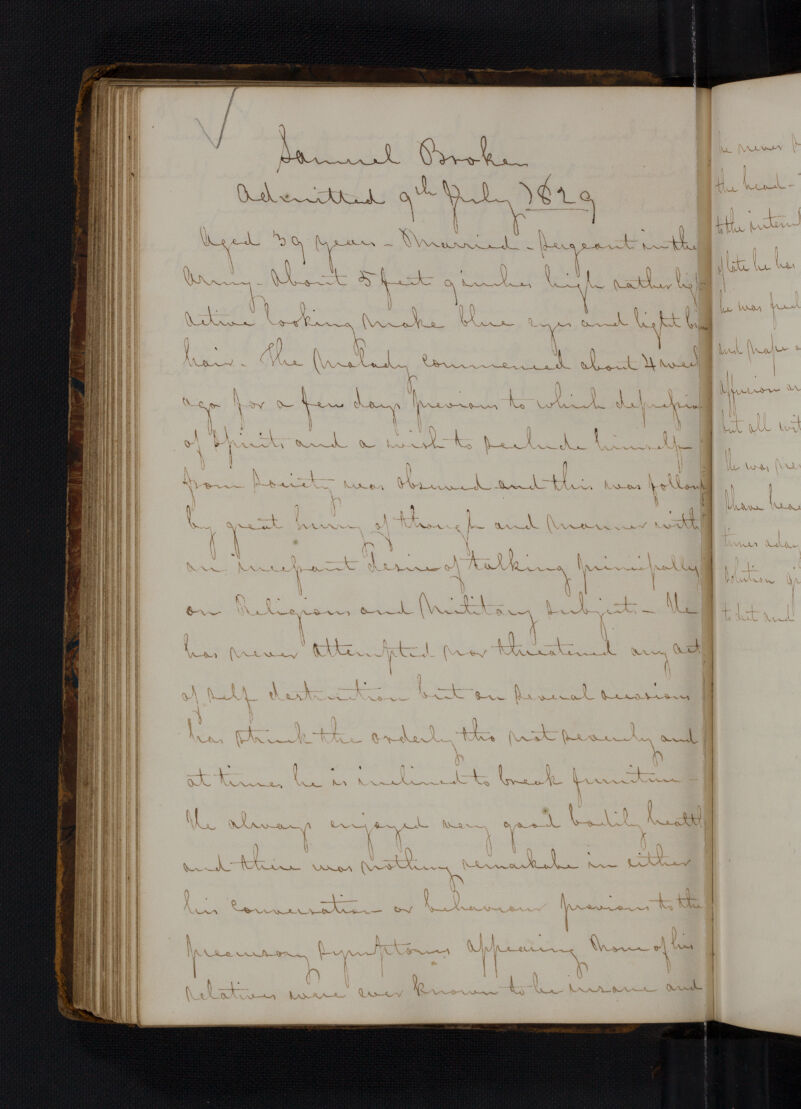 Samuel Broken
Admitted 9th July 1829
Aged 39 years - Married - Sergeant in the
Army - About 5 feet 9 inches high rather
active looking make blue eyes and light
hair. The Malady commenced about 4
ago for a few days previous to which
of Spirits and a wish to seclude himself
from Society was observed and this was
by great hurry of though and Manner with
an incessant desire of talking principally
on Religious and Military subjects - He
has never attempted nor threatened any act
of self destruction but on several occasions
has struck the orderly tho not severely and
at times he is inclined to break furniture -
He always enjoyed very good bodily health
and there was nothing remarkabe in either
his Conversation or behaviour previous to the
precursory symptoms appearing None of his
relatives were ever known to be insane and
he never
the head -
to the
of late he has
he was
and
but all
He was
times a day
solution
to diet and